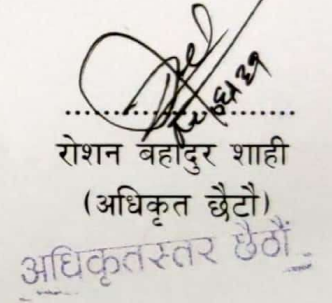 रोशन बहादुर शाही
(अधिकृत छैटौ)
अधिकृतस्तर छैठौं